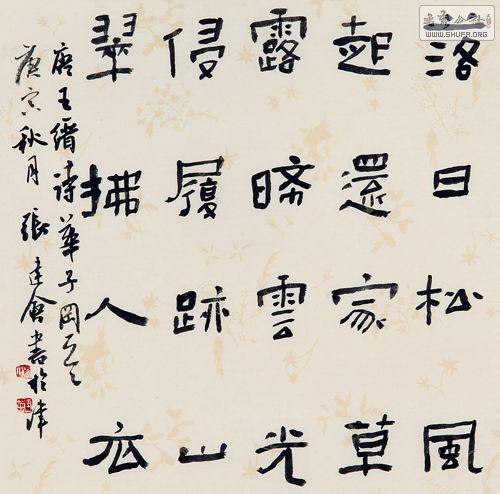 落日松風
起還家草
露晞雲光
侵履跡山
翠拂人衣
唐王縉詩華子岡
庚寅秋月張建會書於津
WWW.SHUFA.ORG